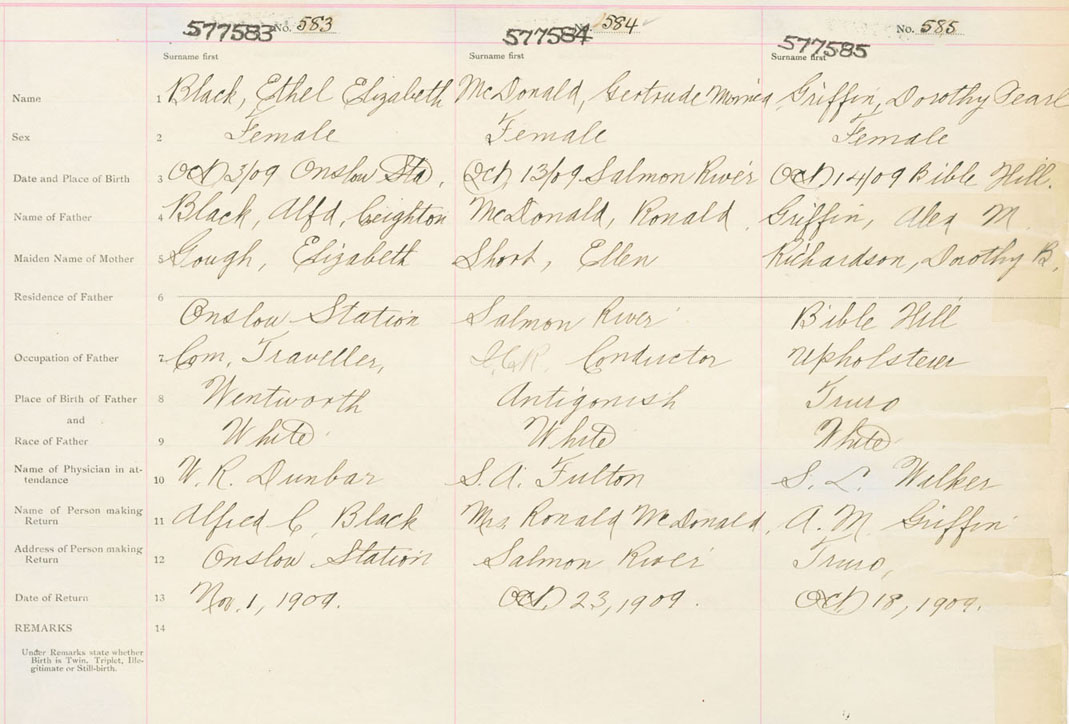 577583 No. 583 577584 No. 584 577585 No. 585
Surname first Surname first Surname first
Name 1 Black, Ethel Elizabeth McDonald, Gertrude Griffin, Dorothy Pearl
Sex 2 Female Female Female
Date and Place of Birth 3 Oct 3/09 Onslow Sta. Oct 13/09 Salmon River Oct 14/09 Bible Hill.
Name of Father 4 Black, Alfd, Ceighton McDonald, Ronald Griffin, Alex M.
Maiden Name of Mother 5 Gough, Elizabeth Short, Ellen Richardson, Dorothy B.
Residence of Father 6
Onslow Station Salmon River Bible Hill
Occupation of Father 7 Com. Traveller, I.C.R. Conductor Upholsterer
Place of Birth of Father 8 Wentworth Antigonish Truro
and
Race of Father 9 White White White
Name of Physician in at-
tendance 10 W. R. Dunbar S. A. Fulton S. L. Walker
Name of Person making
Return 11 Alfred C. Black Mrs Ronald McDonald, A. M. Griffin
Address of Person making
Return 12 Onslow Station Salmon River Truro,
Date of Return 13 Nov. 1, 1909. Oct. 23, 1909. Oct 18, 1909.
REMARKS 14
Under Remarks state whether
Birth is Twin, Triplet, Ille-
gitimate or Still-birth.